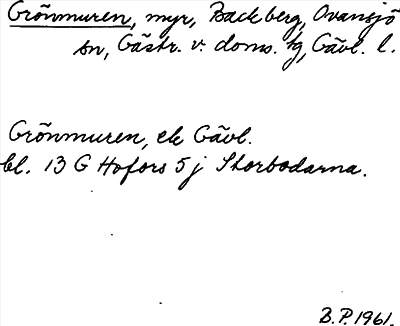 Grönmuren, myr, Backberg, Ovansjö
sn, Gästr. v. doms. hg, Gävl. l.
Grönmuren, ek Gävl.
bl. 13 G Hofors 5 j Storbodarna.
B.P. 1961.